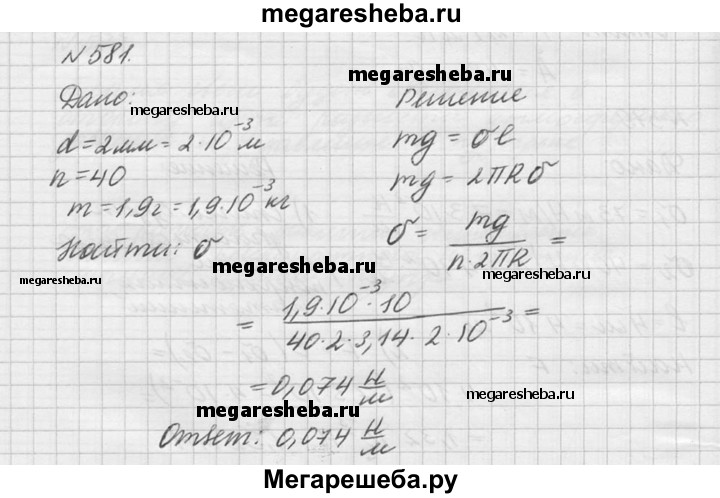 megaresheba.ru
N 581.
Дано:
d = 2 мм = 2·10⁻³ м
n = 40
m = 1,9 г = 1,9·10⁻³ кг
Найти: σ
megaresheba.ru
Решение
mg = σl
mg = 2πRσ
σ = mg / n·2πR =
= 1,9·10⁻³·10 / 40·2·3,14·2·10⁻³ =
= 0,074 Н/м
Ответ: 0,074 Н/м
megaresheba.ru
megaresheba.ru
megaresheba.ru
megaresheba.ru
megaresheba.ru
megaresheba.ru
megaresheba.ru
Мегарешеба.ру